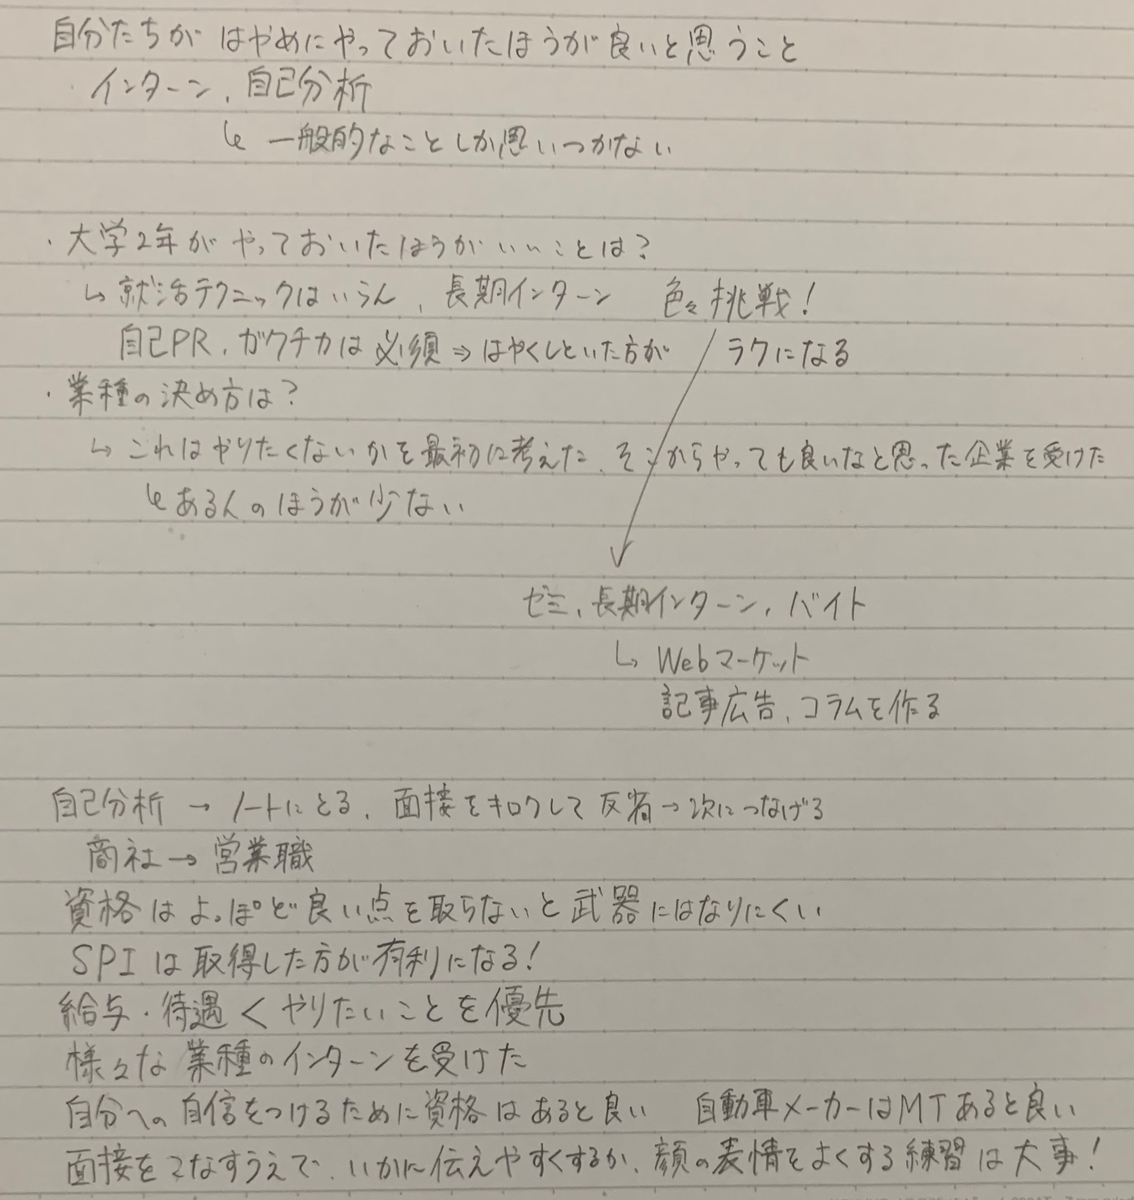 自分たちが はやめにやっておいたほうが良いと思うこと
・インターン、自己分析
↳ 一般的なことしか思いつかない
・大学2年がやっておいたほうがいいことは？
↳ 就活テクニックはいらん、長期インターン 色々挑戦！
自己PR、ガクチカは必須⇒はやくしといた方が ラクになる
・業種の決め方は？
↳ これはやりたくないかを最初に考えた、そこからやっても良いなと思った企業を受けた
↳ ある人のほうが少ない
ゼミ、長期インターン、バイト
↳ Webマーケット
記事広告、コラムを作る
自己分析 → ノートにとる、面接をキロクして反省→次につなげる
商社→営業職
資格はよっぽど良い点を取らないと武器にはなりにくい
SPIは取得した方が有利になる！
給与・待遇＜やりたいことを優先
様々な業種のインターンを受けた
自分への自信をつけるために資格はあると良い 自動車メーカーはMTあると良い
面接をこなすうえで、いかに伝えやすくするか、顔の表情をよくする練習は大事！